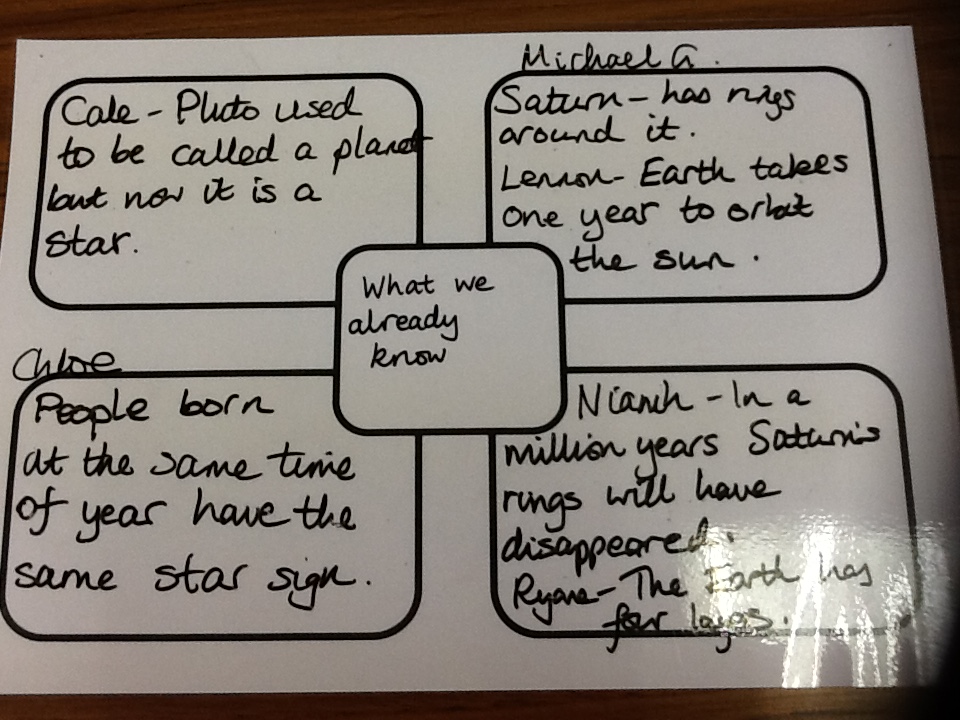 Cale - Pluto used
to be called a planet
but now it is a
star.
Michael G.
Saturn - has rings
around it.
Lennon - Earth takes
one year to orbit
the sun.
What we
already
know
Chloe
People born
at the same time
of year have the
same star sign.
Niamh - In a
million years Saturn's
rings will have
disappeared.
The Earth has
four layers.